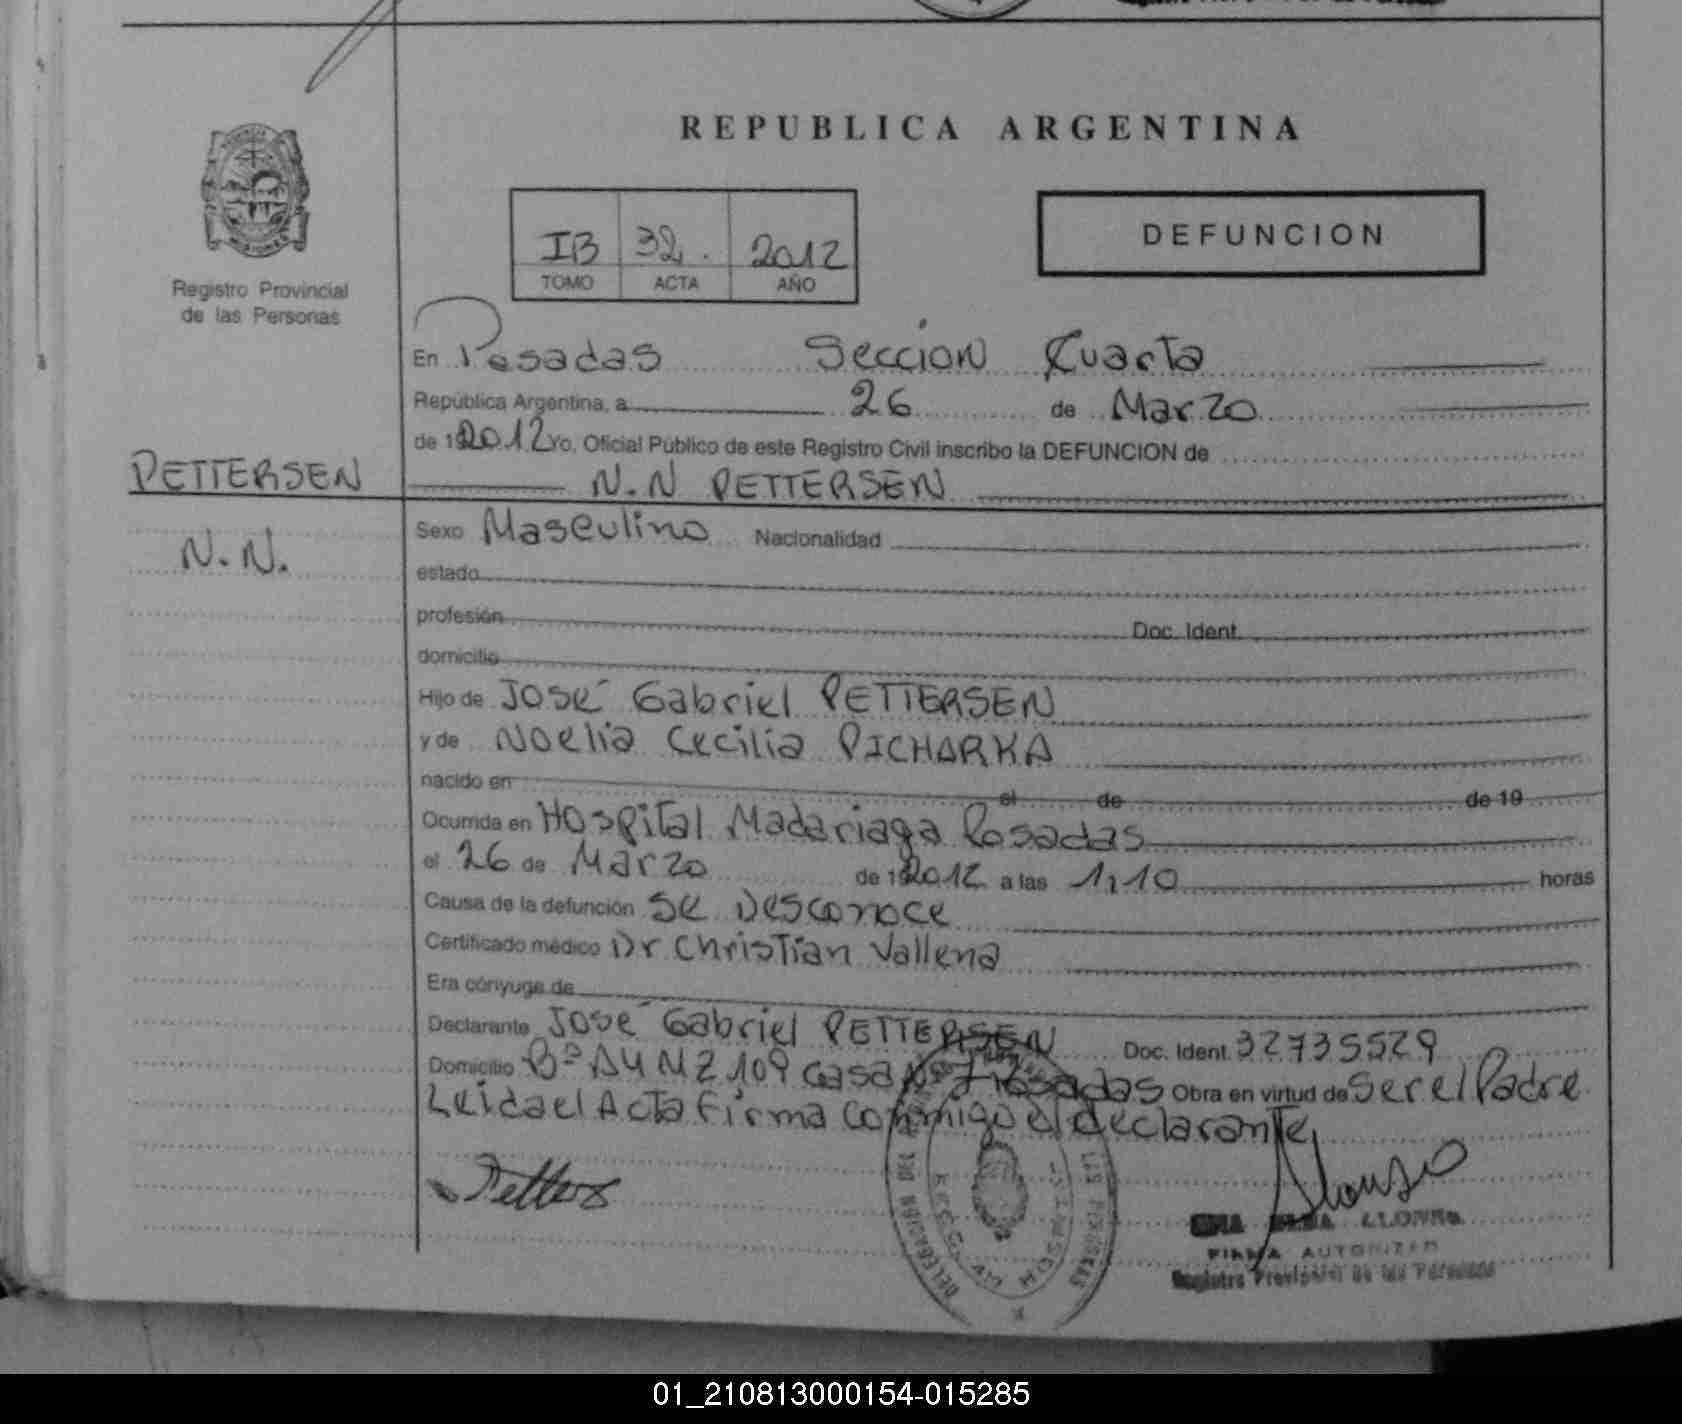 REPUBLICA ARGENTINA
MISIONES
Registro Provincial
de las Personas
IB 32. 2012
TOMO ACTA AÑO
DEFUNCION
En Posadas Sección Cuarta
República Argentina, a 26 de Marzo
de 19 2012 Yo, Oficial Público de este Registro Civil inscribo la DEFUNCION de
PETTERSEN
N.N PETTERSEN
N.N.
Sexo Masculino Nacionalidad
estado
profesión Doc. Ident.
domicilio
Hijo de José Gabriel PETTERSEN
y de Noelia Cecilia PICHARKA
nacido en el de de 19
Ocurrida en Hospital Madariaga Posadas
el 26 de Marzo de 19 2012 a las 1,10 horas
Causa de la defunción Se Desconoce
Certificado médico Dr Christian Vallena
Era cónyuge de
Declarante José Gabriel PETTERSEN Doc. Ident. 32735529
Domicilio Bº A4 MZ 109 Casa Nº Posadas Obra en virtud de Ser el Padre
Leida el Acta Firma conmigo el declarante
DELEGACION DEL LAS PERSONAS
FIRMA AUTORIZADA
Registro Provincial de las Personas
01_210813000154-015285